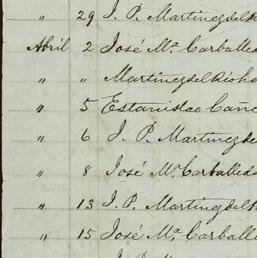 " 29 J. P. Martinez del
Abril 2 José Ma. Carballed
" " Martinez del Rio ho
" 5 Estanislao Cañe
" 6 J. P. Martinez de
" 8 José Ma. Carballed
" 13 J. P. Martinez del
" 15 José Ma. Carball